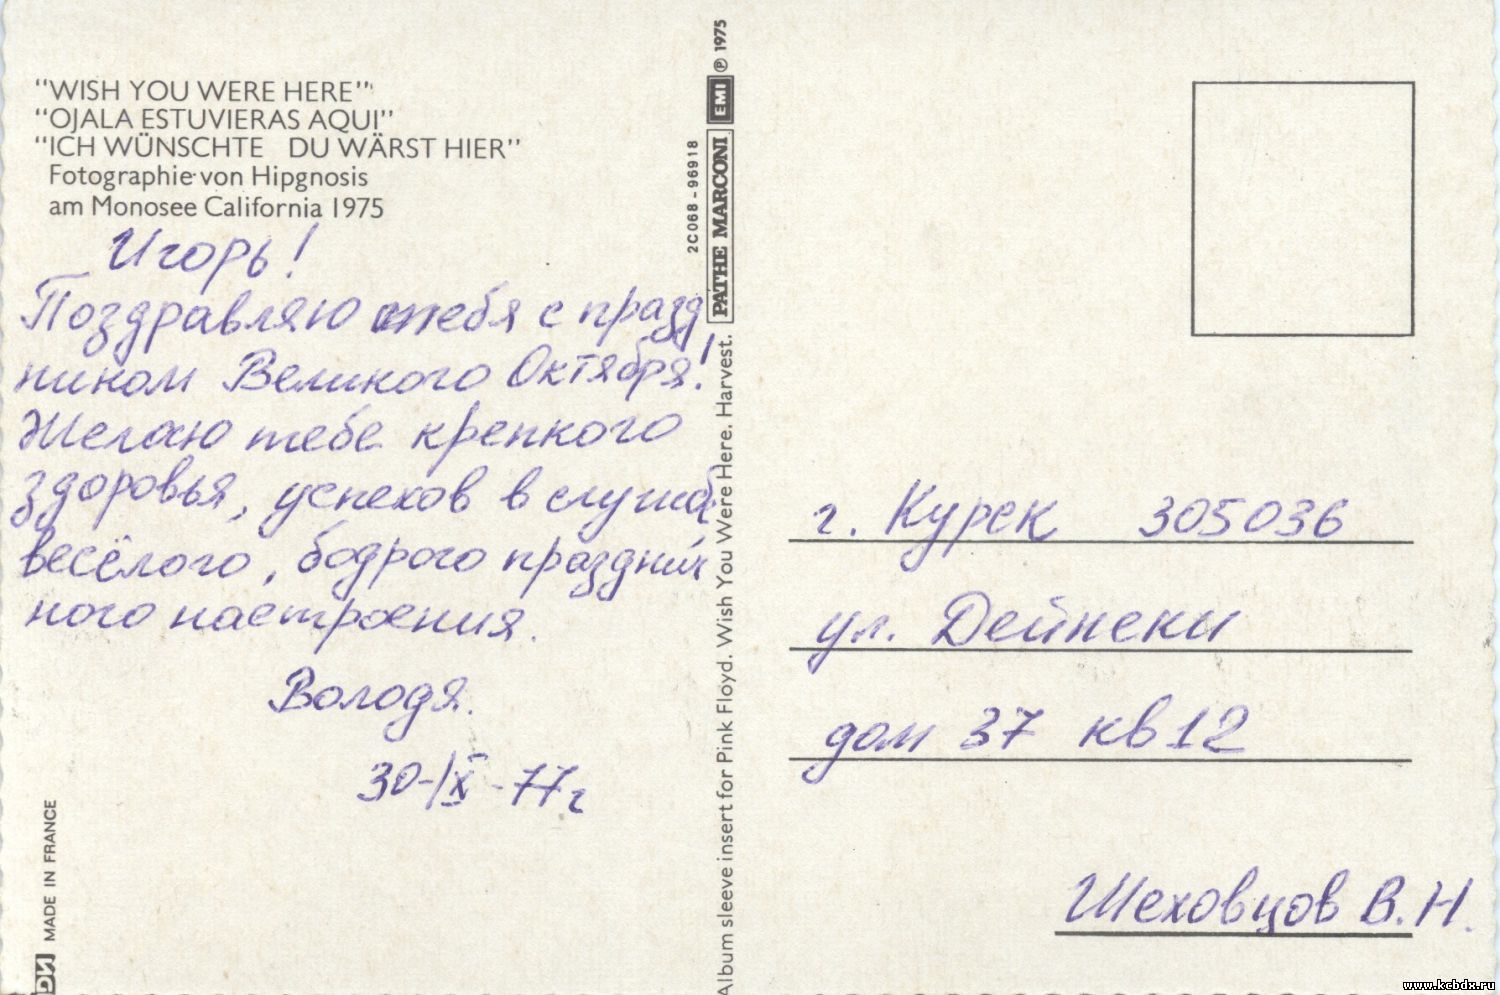 “WISH YOU WERE HERE”
“OJALA ESTUVIERAS AQUI”
“ICH WÜNSCHTE DU WÄRST HIER”
Fotographie von Hipgnosis
am Monosee California 1975
Игорь!
Поздравляю тебя с празд
ником Великого Октября!
Желаю тебе крепкого
здоровья, успехов в службе
весёлого, бодрого праздни
ного настроения.
Володя.
30-IX-77г
MADE IN FRANCE
Album sleeve insert for Pink Floyd. Wish You Were Here. Harvest.
PATHE MARCONI EMI ℗ 1975
2C068-96918
г. Курск 305036
ул. Дейнеки
дом 37 кв 12
Шеховцов В.Н.
www.kcbdx.ru